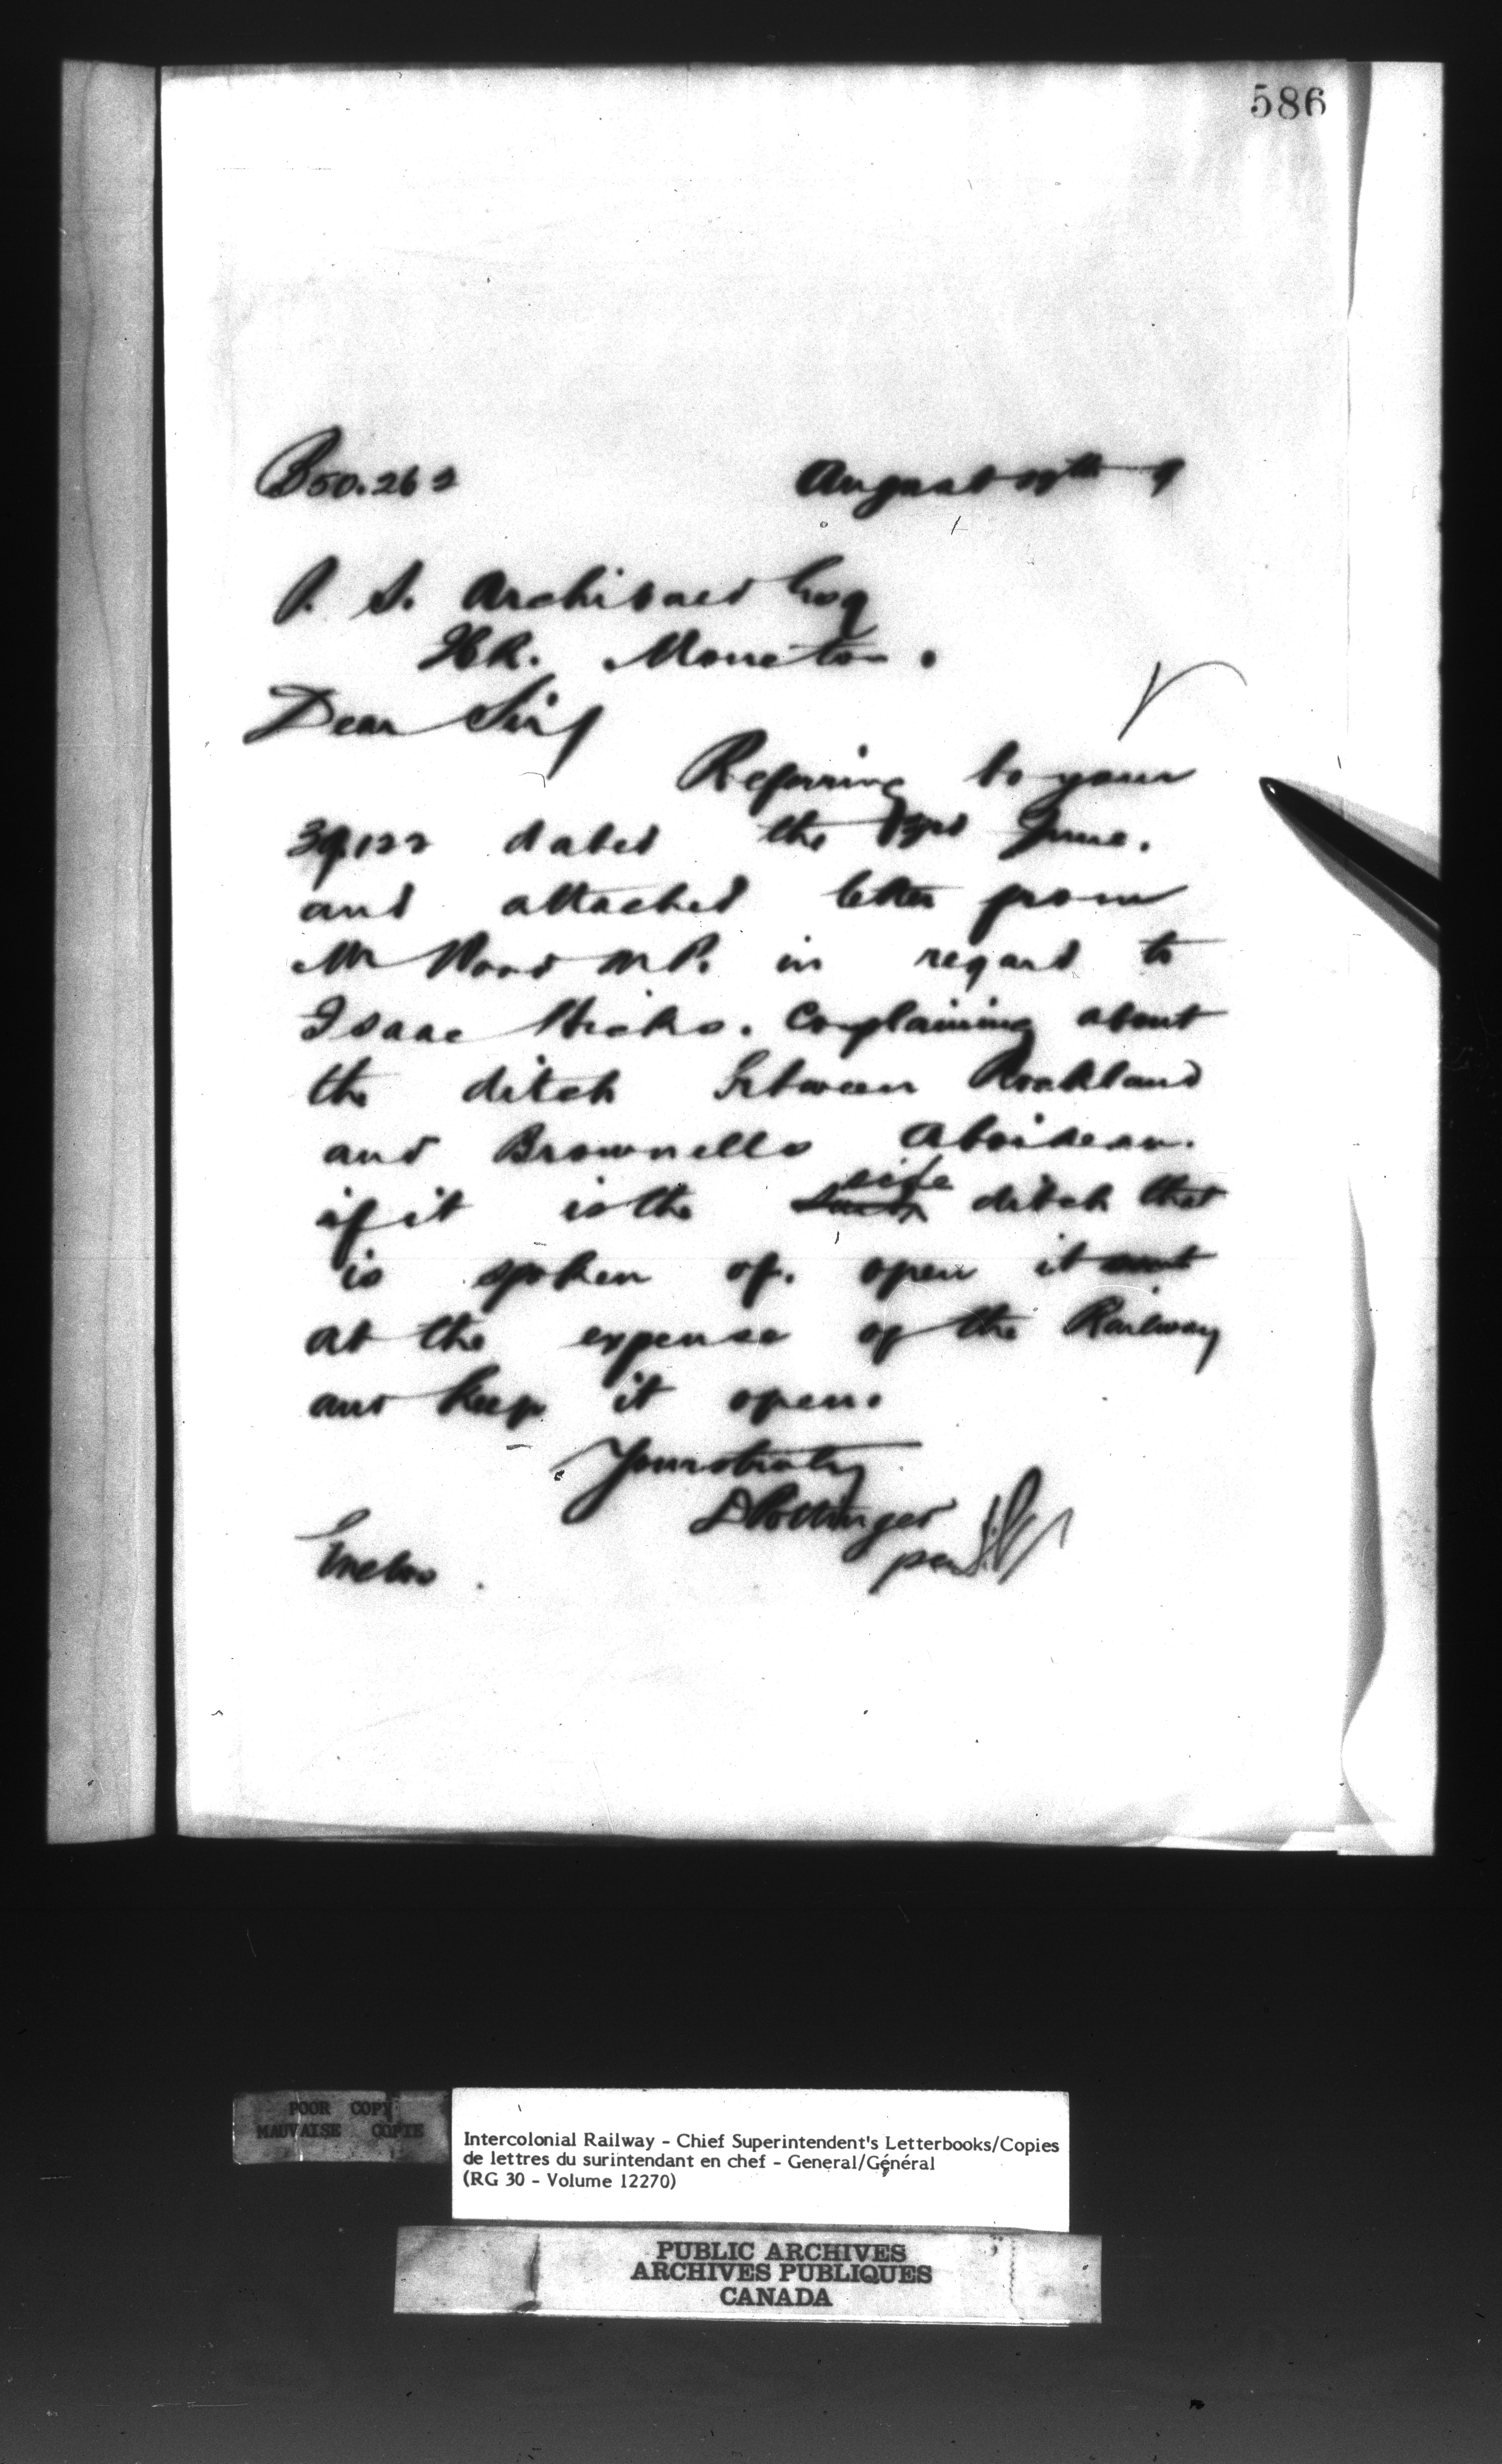 586
B50.262 August 9
P. S. Archibald Esq
I.C.R. Moncton.
Dear Sir/
Referring to your
39,122 dated the 23rd June.
and attached letter from
Mr Wood M.P. in regard to
Isaac Hicks. Complaining about
the ditch between Rockland
and Brownells Aboideau.
if it is the side ditch that
is spoken of. open it
at the expense of the Railway
and keep it open.
Yours truly
D Pottinger
per
Enclos.
POOR COPY
MAUVAISE COPIE
Intercolonial Railway - Chief Superintendent's Letterbooks/Copies
de lettres du surintendant en chef - General/Général
(RG 30 - Volume 12270)
PUBLIC ARCHIVES
ARCHIVES PUBLIQUES
CANADA